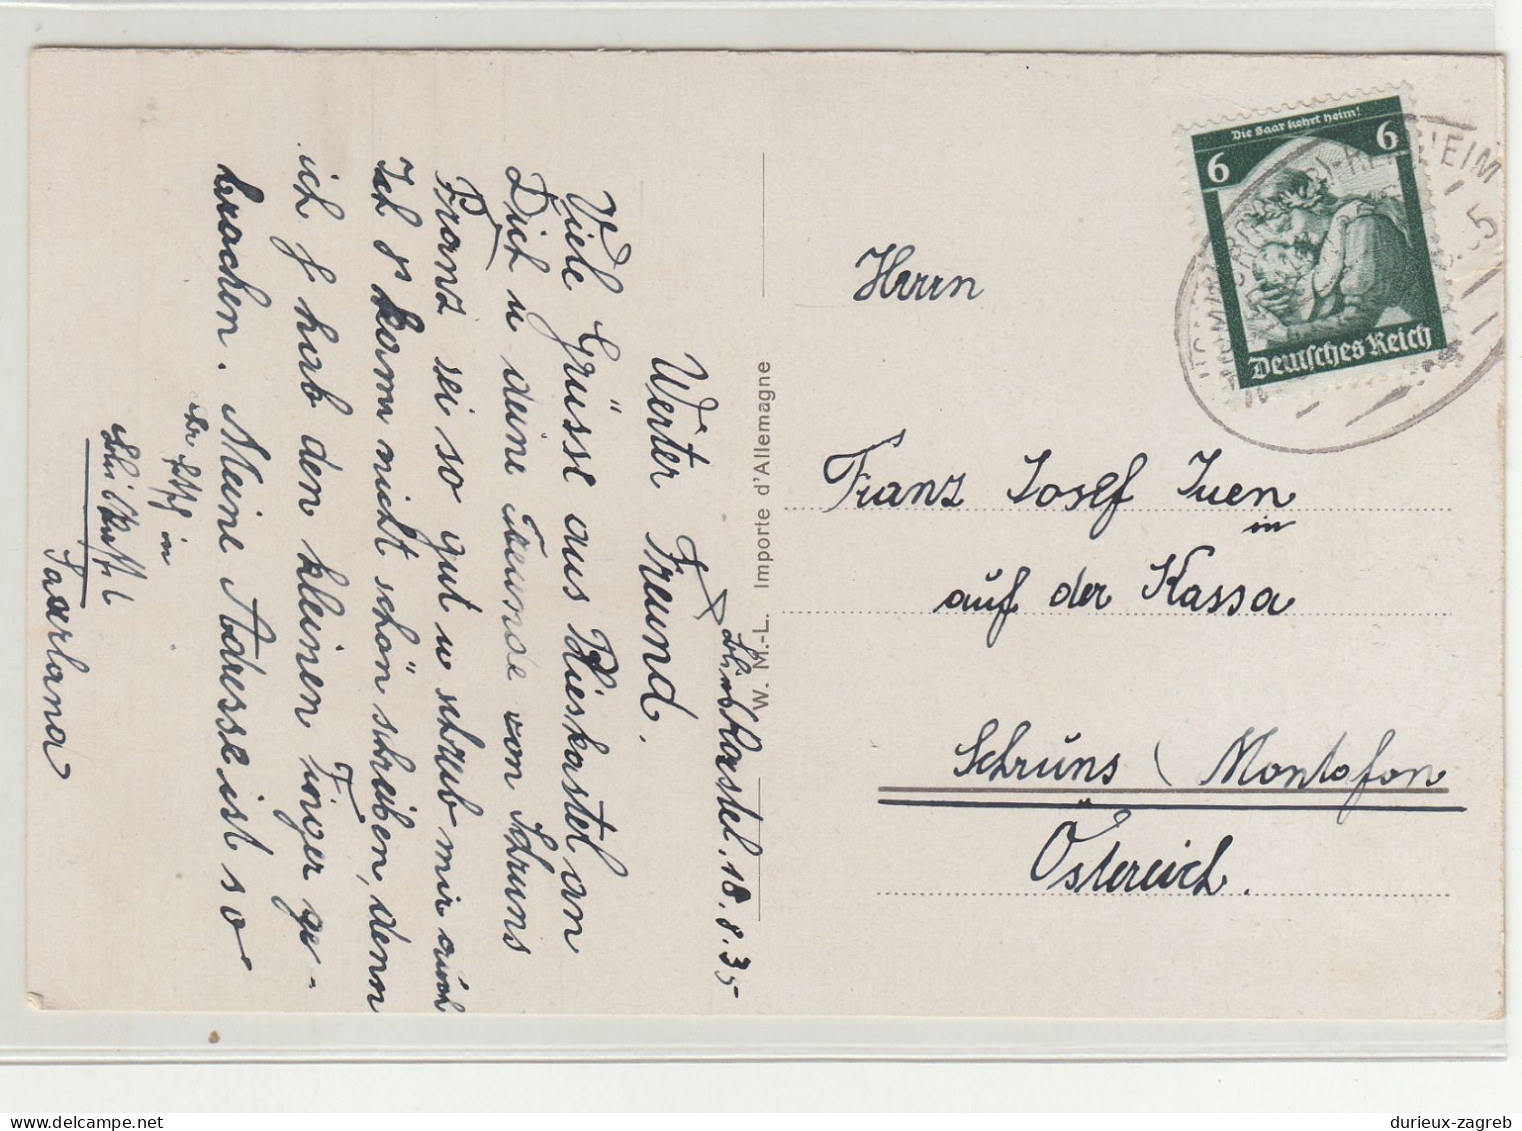 Blieskastel. 18.8.35
Werter Freund.
Viele Grüsse aus Blieskastel an
Dich u deine Freunde von Schruns
Franz sei so gut u schreib mir auch
Ich kann nicht schön schreiben, denn
ich hab den kleinen Finger ge-
brochen. Meine Adresse ist so
in
Saarland
W. M.-L. Importe d'Allemagne
Die Saar kehrt heim!
6 6
Deutsches Reich
Herrn
Franz Josef Juen
in
auf der Kassa
Schrüns (Montafon
Östereich.
durieux-zagreb